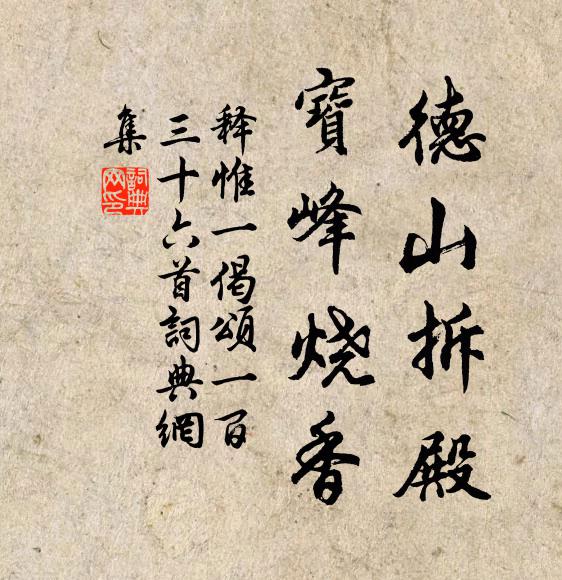 德山拆殿
寶峰烧香
释惟一偈頌一百
三十六首詞典網
集
詞典
网印